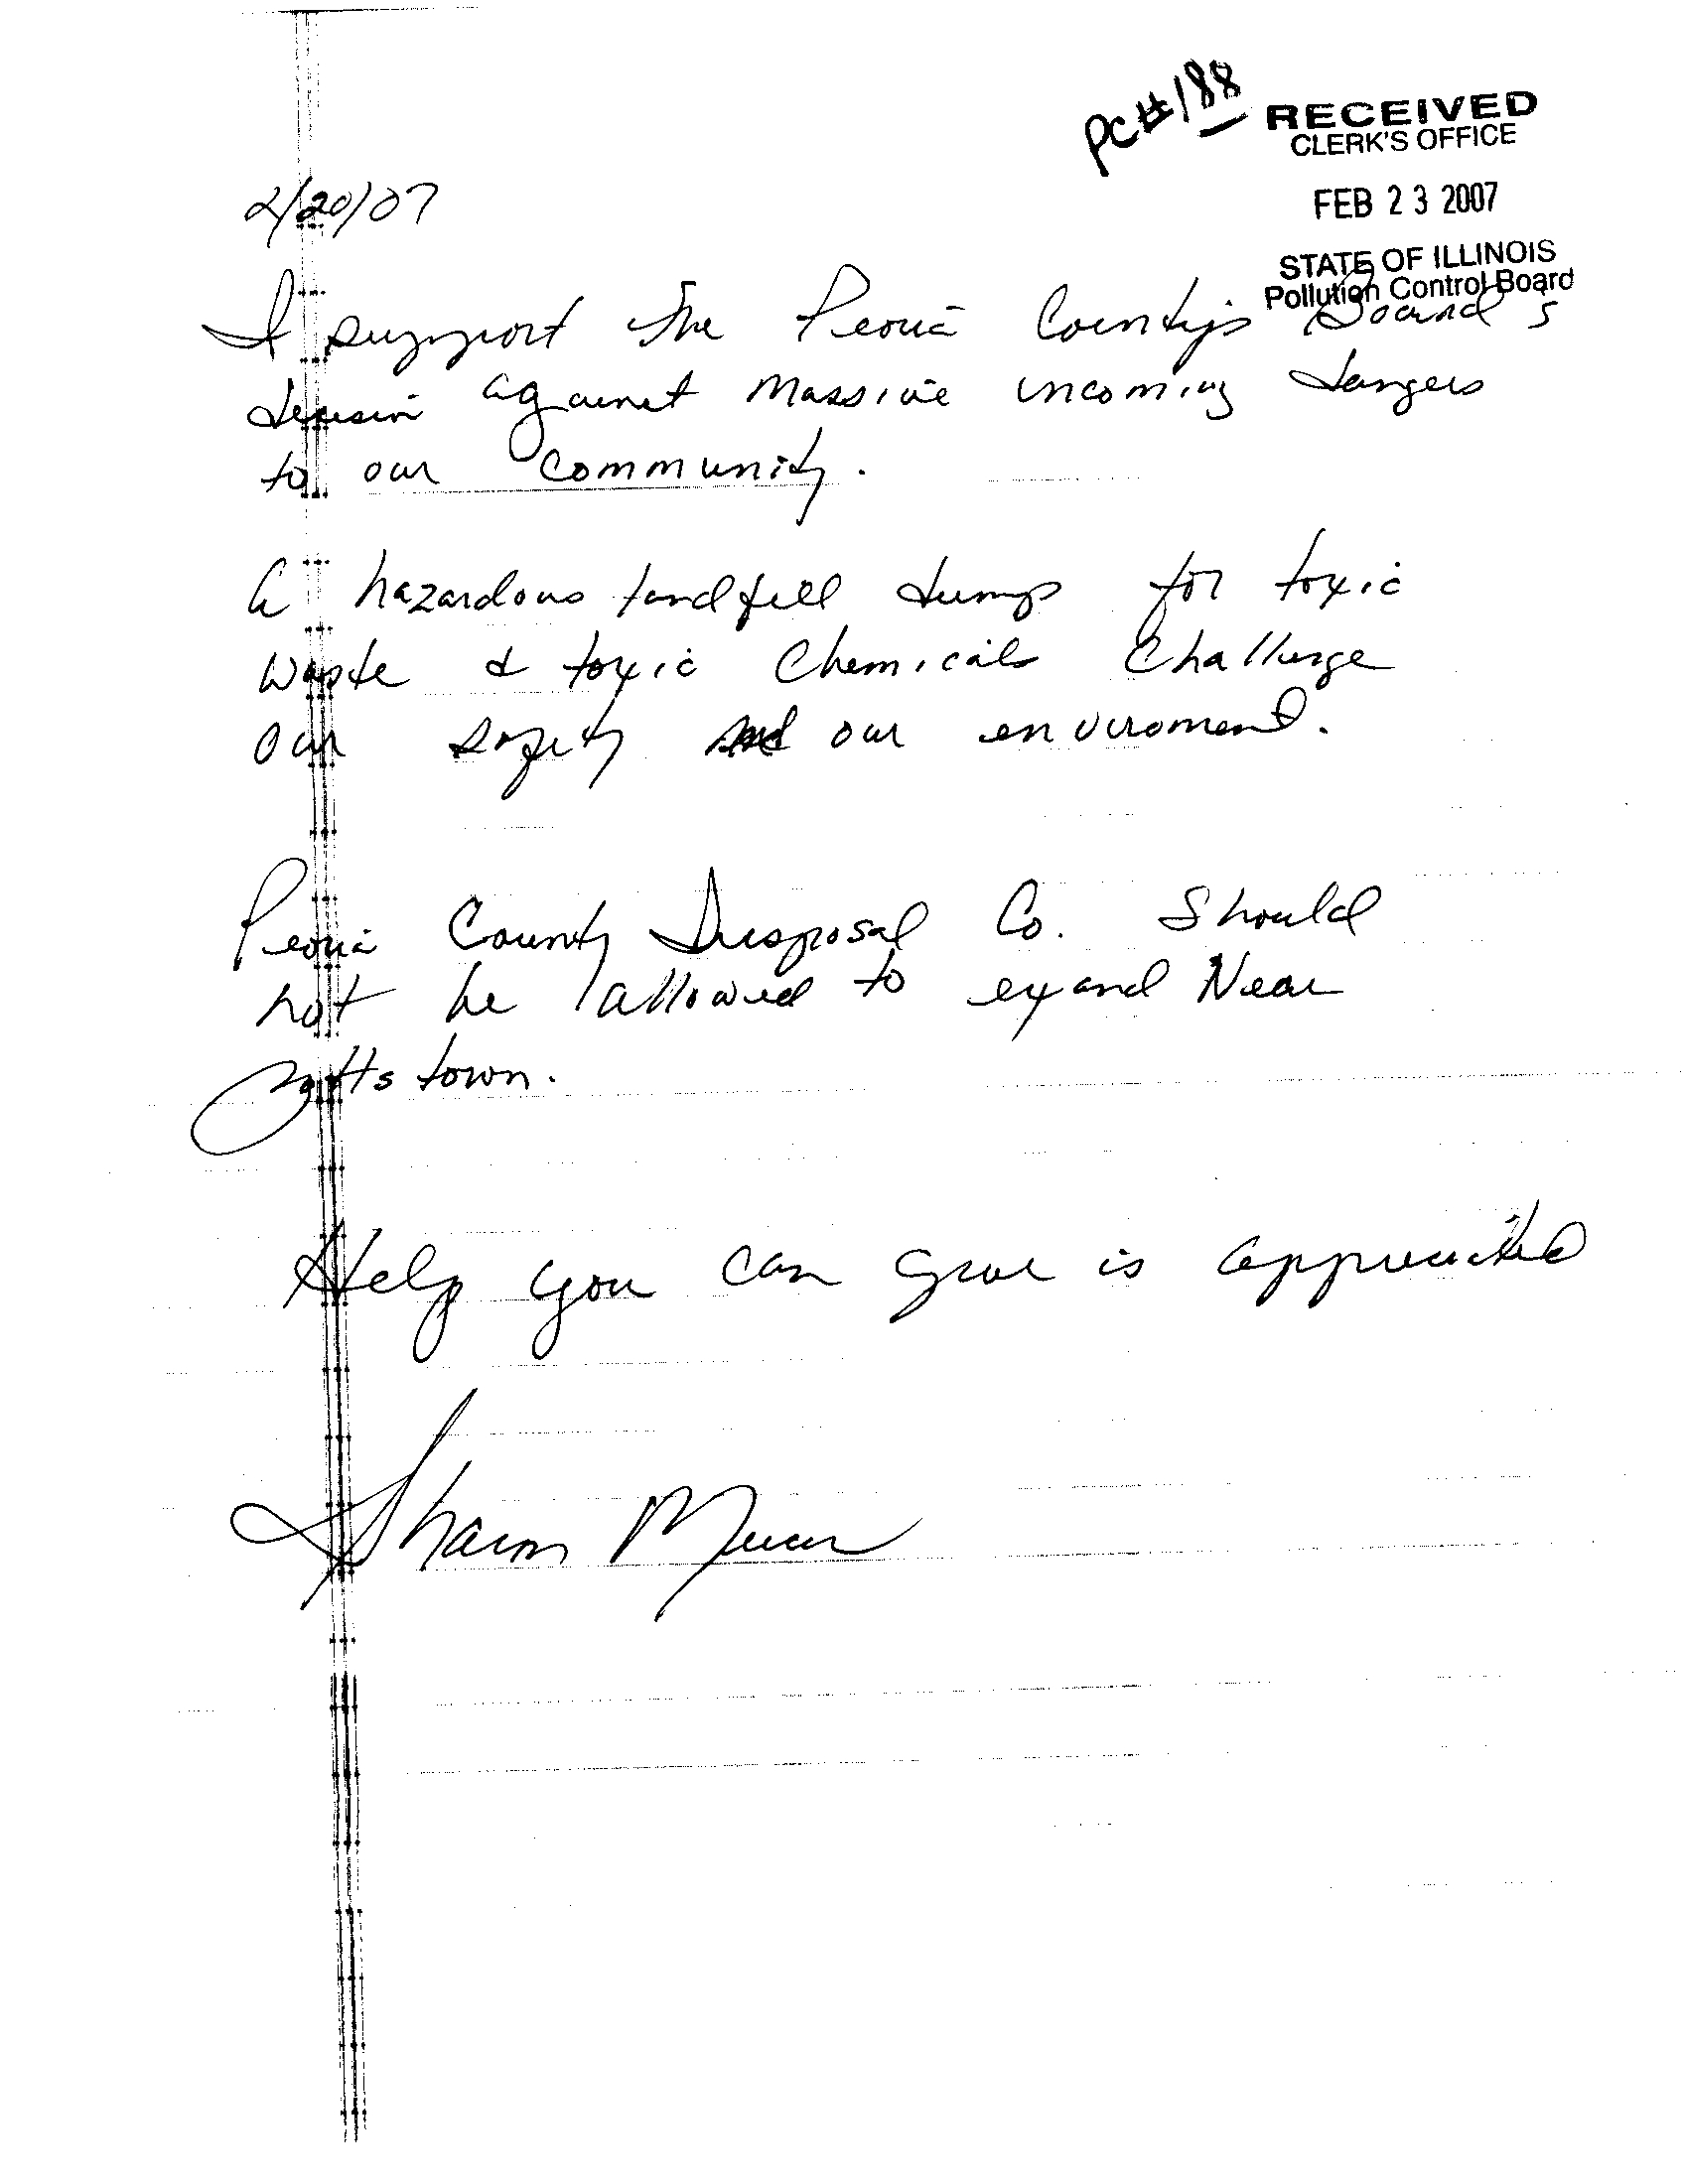 PC#188
RECEIVED
CLERK'S OFFICE
FEB 23 2007
STATE OF ILLINOIS
Pollution Control Board
2/20/07
I support the Peoria County's Board's
decision against massive incoming dangers
to our community.
A hazardous landfill dump for toxic
waste & toxic chemicals challenge
our safety and our enviroment.
Peoria County Disposal Co. Should
not be allowed to exand Near
Pottstown.
Help you can give is appreciated
Sharon